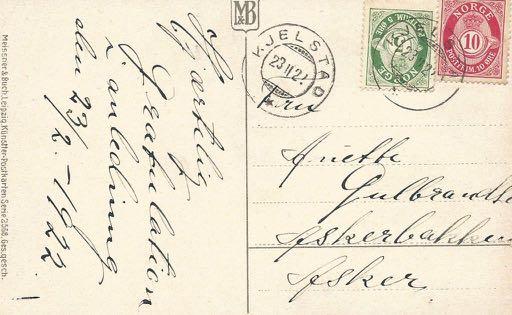 Hjærtelig
Gratulation
i anledning
den 23/2.-1922
M&B
KJELSTAD
23 II 2
NORGE
10
POSTFRIM 10 ØRE
Fru
Anette
Gulbrandse
Askerbakken
Asker
Meissner & Buch, Leipzig. Künstler-Postkarten Serie 2568, Ges. gesch.